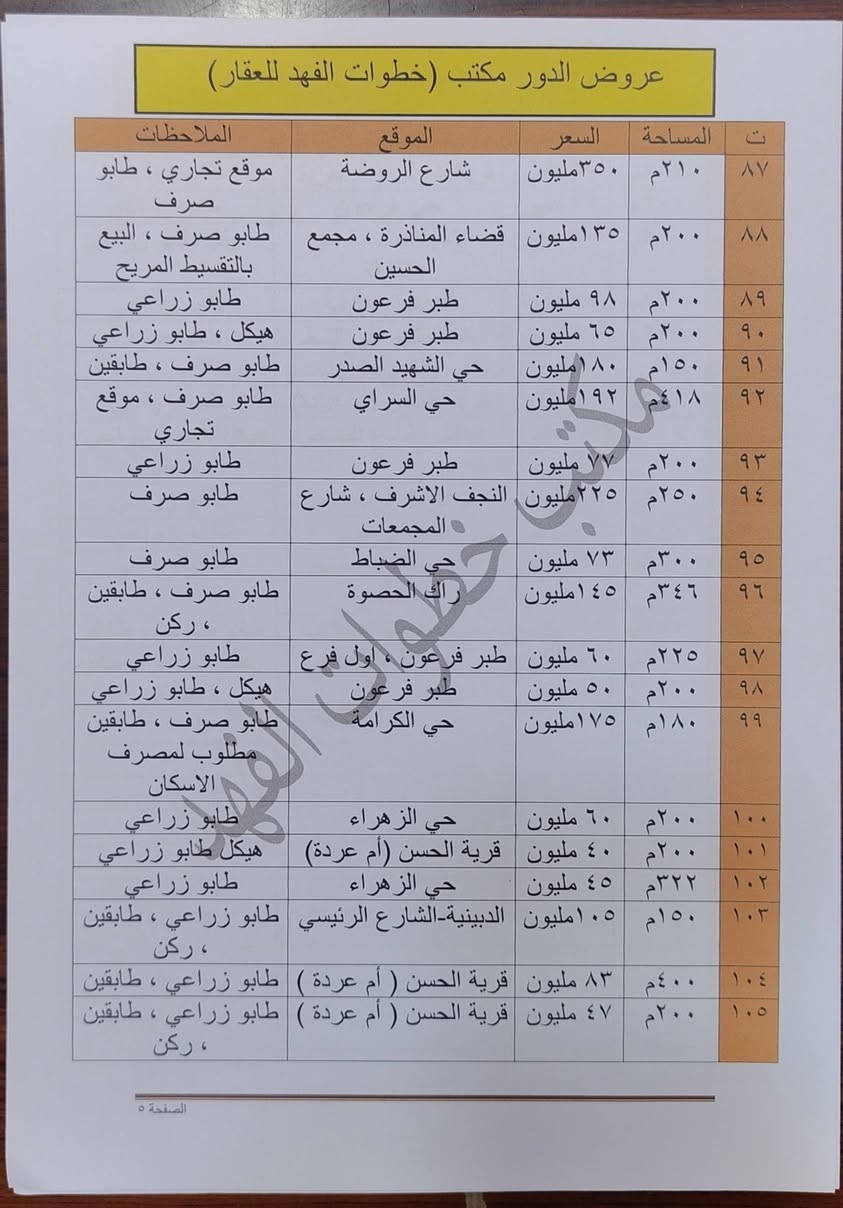 عروض الدور مكتب (خطوات الفهد للعقار)
ت المساحة السعر الموقع الملاحظات
٨٧ ٢١٠م ٣٥٠مليون شارع الروضة موقع تجاري ، طابو
صرف
٨٨ ٢٠٠م ١٣٥مليون قضاء المناذرة ، مجمع طابو صرف ، البيع
الحسين بالتقسيط المريح
٨٩ ٢٠٠م ٩٨ مليون طبر فرعون طابو زراعي
٩٠ ٢٠٠م ٦٥ مليون طبر فرعون هيكل ، طابو زراعي
٩١ ١٥٠م ١٨٠مليون حي الشهيد الصدر طابو صرف ، طابقين
٩٢ ٤١٨م ١٩٢مليون حي السراي طابو صرف ، موقع
تجاري
٩٣ ٢٠٠م مليون طبر فرعون طابو زراعي
٩٤ ٢٥٠م ٢٢٥مليون النجف الاشرف ، شارع طابو صرف
المجمعات
٩٥ ٣٠٠م ٧٣ مليون حي الضباط طابو صرف
٩٦ ٣٤٦م ١٤٥مليون راك الحصوة طابو صرف ، طابقين
، ركن
٩٧ ٢٢٥م ٦٠ مليون طبر فرعون ، اول فرع طابو زراعي
٩٨ ٢٠٠م ٥٠ مليون طبر فرعون هيكل ، طابو زراعي
٩٩ ١٨٠م ١٧٥مليون حي الكرامة طابو صرف ، طابقين
مطلوب لمصرف
الاسكان
١٠٠ ٢٠٠م ٦٠ مليون حي الزهراء طابو زراعي
١٠١ ٢٠٠م ٤٠ مليون قرية الحسن (أم عردة) هيكل طابو زراعي
١٠٢ ٣٢٢م ٤٥ مليون حي الزهراء طابو زراعي
١٠٣ ١٥٠م ١٠٥مليون الدبينية-الشارع الرئيسي طابو زراعي ، طابقين
، ركن
١٠٤ ٤٠٠م ٨٣ مليون قرية الحسن ( أم عردة ) طابو زراعي ، طابقين
١٠٥ ٢٠٠م ٤٧ مليون قرية الحسن ( أم عردة ) طابو زراعي ، طابقين
، ركن
مكتب خطوات الفهد
الصفحة ٥